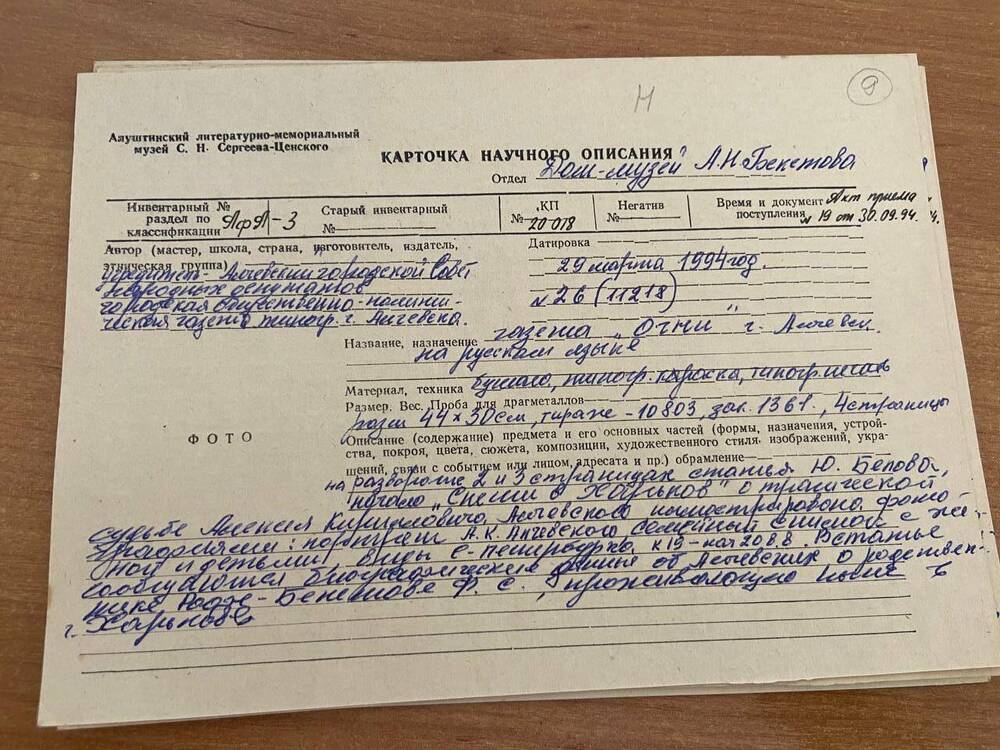 Н
9
Алуштинский литературно-мемориальный
музей С. Н. Сергеева-Ценского
КАРТОЧКА НАУЧНОГО ОПИСАНИЯ
Отдел Дом-музей А.Н. Бекетова
Инвентарный №
раздел по
классификации АфЛ-3
Старый инвентарный
№
КП
№ 20-018
Негатив
№
Время и документ Акт приема
поступления № 19 от 30.09.94 г.
Автор (мастер, школа, страна, изготовитель, издатель,
этническая группа)
учредитель - Алчевский городской Совет
народных депутатов
городская общественно-полити-
ческая газета типогр. г. Алчевска.
Датировка
29 марта 1994 год.
№ 26 (11218)
Название, назначение газета „Огни" г. Алчевск.
на русском языке
Материал, техника бумага, типогр. краска, типогр. печать
Размер. Вес. Проба для драгметаллов
разм 44×30см, тираж - 10803, зак. 1361, 4 страницы
Описание (содержание) предмета и его основных частей (формы, назначения, устрой-
ства, покроя, цвета, сюжета, композиции, художественного стиля изображений, укра-
шений, связи с событием или лицом, адресата и пр.) обрамление
ФОТО
на развороте 2 и 3 страницах статья Ю. Белова,
начало „ в Харьков" о трагической
судьбе Алексея Кирилловича Алчевского иллюстрирована фото-
графиями: портрет А.К. Алчевского семейный снимок с же-
ной и детьми, виды С-Петербурга к 19 - нач 20 в в. В статье
сообщаются биографические данные об Алчевских о родствен-
нице - Бекетове Ф. С., проживающую ныне в
г. Харькове